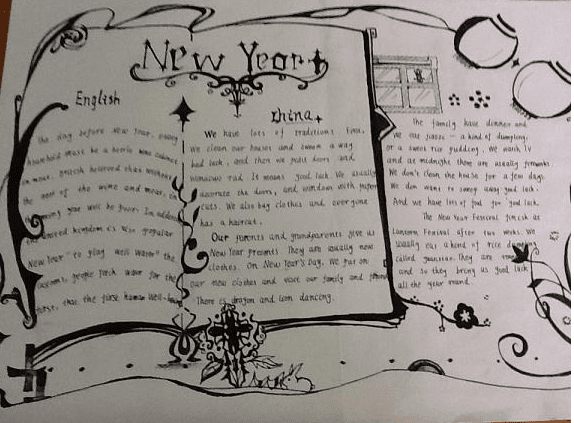 New Year
English
The day before New Year, every
household must be a bottle wine cabinet
in meat. British believed that without
the rest of the wine and meat, in
the coming year will be poor. In addition
the united kingdom is also popular
New Year "to play well water" the
customs, people fetch water for the
first, that the first human well-
China
We have lots of traditions. First,
We clean our houses and sweep a way
bad luck, and then we paint doors and
windows red. It means good luck. We usually
decorate the doors, and windows with paper
cuts. We also buy clothes and everyone
has a haircut.
Our parents and grandparents give us
New Year presents. They are usually new
clothes. On New Year's Day, We put on
our new clothes and visit our family and
There is dragon and lion dancing.
The family have dinner and
we eat jiaozi - a kind of dumpling,
or a sweet rice pudding. We watch TV
and at midnight there are usually fireworks
We don't clean the house for a few days.
We don want to sweep away good luck.
And we have lots of food for good luck.
The New Year Festival finish at
Lantern Festival after two weeks. We
usually eat a kind of rice
called yuanxiao. They are
and so they bring us good luck
all the year round.